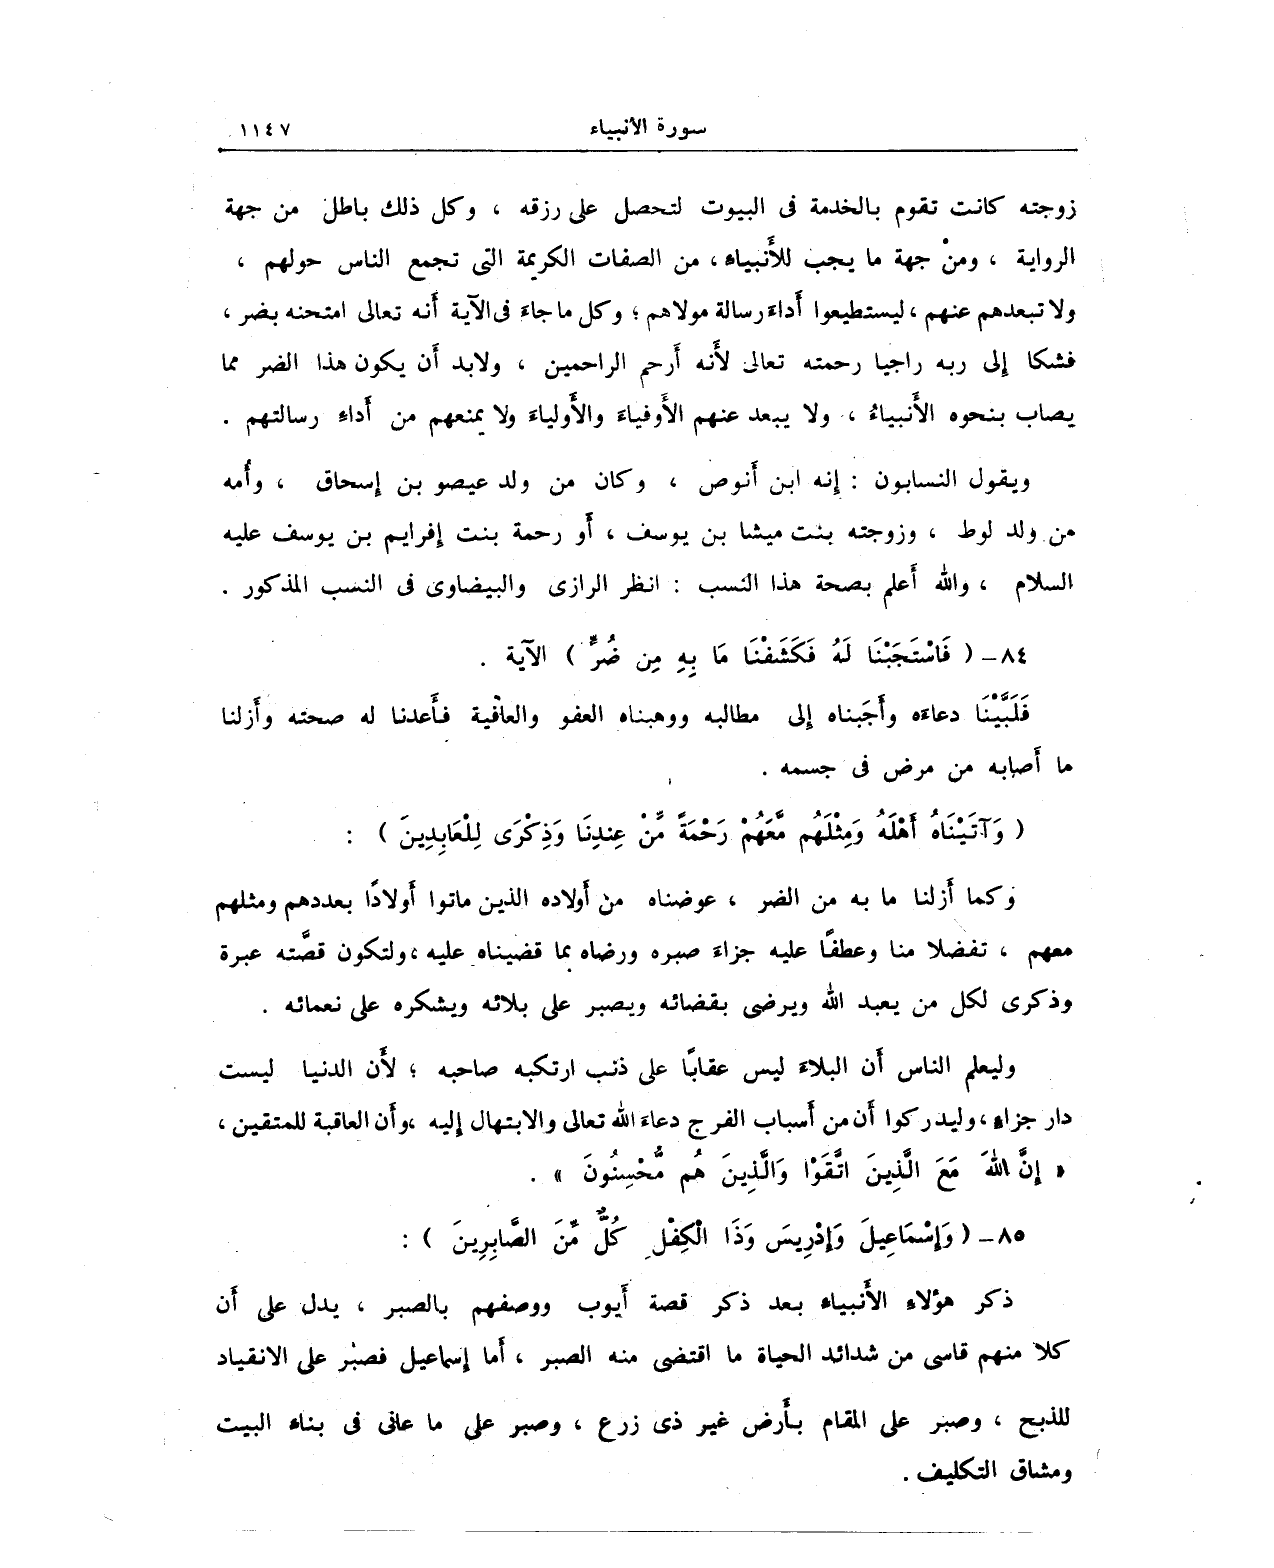 سورة الأنبياء ١١٤٧
زوجته كانت تقوم بالخدمة فى البيوت لتحصل على رزقه ، وكل ذلك باطل من جهة
الرواية ، ومنْ جهة ما يجب للأَنبياء ، من الصفات الكريمة التى تجمع الناس حولهم ،
ولا تبعدهم عنهم ، ليستطيعوا أَداءَ رسالة مولاهم ؛ وكل ما جاءَ فى الآية أَنه تعالى امتحنه بضر ،
فشكا إلى ربه راجيا رحمته تعالى لأَنه أَرحم الراحمين ، ولابد أَن يكون هذا الضر مما
يصاب بنحوه الأَنبياءُ ، ولا يبعد عنهم الأَوفياءَ والأَولياءَ ولا يمنعهم من أَداءِ رسالتهم .
ويقول النسابون : إنه ابن أَنوص ، وكان من ولد عيصو بن إسحاق ، وأُمه
من ولد لوط ، وزوجته بنت ميشا بن يوسف ، أَو رحمة بنت إفرايم بن يوسف عليه
السلام ، والله أَعلم بصحة هذا النسب : انظر الرازى والبيضاوى فى النسب المذكور .
٨٤ - ( فَاسْتَجَبْنَا لَهُ فَكَشَفْنَا مَا بِهِ مِن ضُرٍّ ) الآية .
فَلَبَّيْنَا دعاءَه وأَجَبناه إلى مطالبه ووهبناه العفو والعافية فأَعدنا له صحته وأَزلنا
ما أَصابه من مرض فى جسمه .
( وَآتَيْنَاهُ أَهْلَهُ وَمِثْلَهُم مَّعَهُمْ رَحْمَةً مِّنْ عِندِنَا وَذِكْرَى لِلْعَابِدِينَ ) :
وكما أَزلنا ما به من الضر ، عوضناه من أَولاده الذين ماتوا أَولادًا بعددهم ومثلهم
معهم ، تفضلا منا وعطفًا عليه جزاءَ صبره ورضاه بما قضيناه عليه ، ولتكون قصَّته عبرة
وذكرى لكل من يعبد الله ويرضى بقضائه ويصبر على بلائه ويشكره على نعمائه .
وليعلم الناس أَن البلاءَ ليس عقابًا على ذنب ارتكبه صاحبه ؛ لأَن الدنيا ليست
دار جزاءٍ ، وليدركوا أَن من أَسباب الفرج دعاءَ الله تعالى والابتهال إليه ، وأَن العاقبة للمتقين ،
« إِنَّ اللهَ مَعَ الَّذِينَ اتَّقَوْا وَالَّذِينَ هُم مُّحْسِنُونَ » .
٨٥ - ( وَإِسْمَاعِيلَ وَإِدْرِيسَ وَذَا الْكِفْلِ كُلٌّ مِّنَ الصَّابِرِينَ ) :
ذكر هؤلاءِ الأَنبياء بعد ذكر قصة أَيوب ووصفهم بالصبر ، يدل على أَن
كلا منهم قاسى من شدائد الحياة ما اقتضى منه الصبر ، أَما إسماعيل فصبر على الانقياد
للذبح ، وصبر على المقام بأَرض غير ذى زرع ، وصبر على ما عانى فى بناء البيت
ومشاق التكليف .